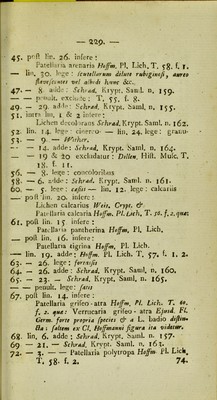 — 229. —
45. post lin. 26. insere:
Patellaria arenaris Hoffm. Pl. Lich. T. 58. f. 1.
— lin. 30. lege: scutellarum dilute rubiginosi, aureo
flavescente vel albidi hinc &c.
47. — 8. adde: Schrad. Krypt. Saml. n. 159.
— — penult. exclude: T. 55. f. 8.
49. — 29. adde: Schrad. Krypt. Saml. n. 155.
51. intra lin. 1 & 2 insere:
Lichen decolorans Schrad. Krypt. Saml. n. 162.
52. lin. 14. lege: cinereo — lin. 24. lege: granu-
53. — 9. — Wither,
— — 14. adde: Schrad. Krypt. Saml. n. 164.
— — 19 & 20 excludatur: Dillen. Hist. Musc. T.
18. f. 11.
56. — 8. lege: concoloribus
58. — 6. adde: Schrad. Krypt. Saml. n. 161.
60. — 5. lege: caesis — lin. 12. lege: calcariis
— post lin. 20. insere:
Lichen calcarius Weis. Crypt. &
Patellaria calcaria Hoffm. Pl. Lich. T. 56. f. 2. quae:
61. post lin. 15. insere:
Patellaria pantherina Hoffm. Pl. Lich.
— post lin. 16. insere:
Patellaria tigrina Hoffm. Pl. Lich.
— lin. 19. adde: Hoffm. Pl. Lich. T. 57. f. 1. 2.
63. — 26. lege: fornisis
64. — 26. adde: Schrad. Krypt. Saml. n. 160.
65. — 23. — Schrad. Krypt. Saml. n. 165.
— — penult. lege: satis
67. post lin. 14. insere:
Patellaria griseo-atra Hoffm. Pl. Lich. T. 60.
f. 2. quae: Verrucaria griseo-atra Ejusd. Fl.
Germ. forte propria species & a L. badio distin-
cta: saltem ex Cl. Hoffmanni figura ita videtur.
68. lin. 6. adde: Schrad. Krypt. Saml. n. 157.
69 — 21. — Schrad. Krypt. Saml. n. 163.
72. — 3. — — Patellaria polytropa Hoffm. Pl. Lich.
T. 58. f. 2.
74.